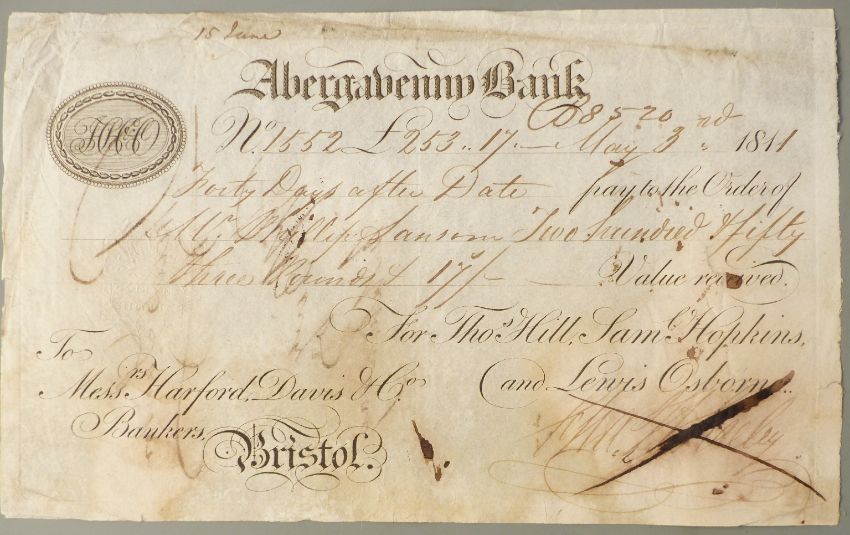 15 June
Abergavenny Bank
B8520
No. 1552 £253..17.— May 3rd 1811
Forty Days after Date pay to the Order of
Mr. Phillip Sansom Two hundred & fifty
three Pounds & 17/— Value received.
For Thos. Hill, Saml. Hopkins,
and Lewis Osborne.
To
Messrs. Harford, Davis & Co.
Bankers,
Bristol.